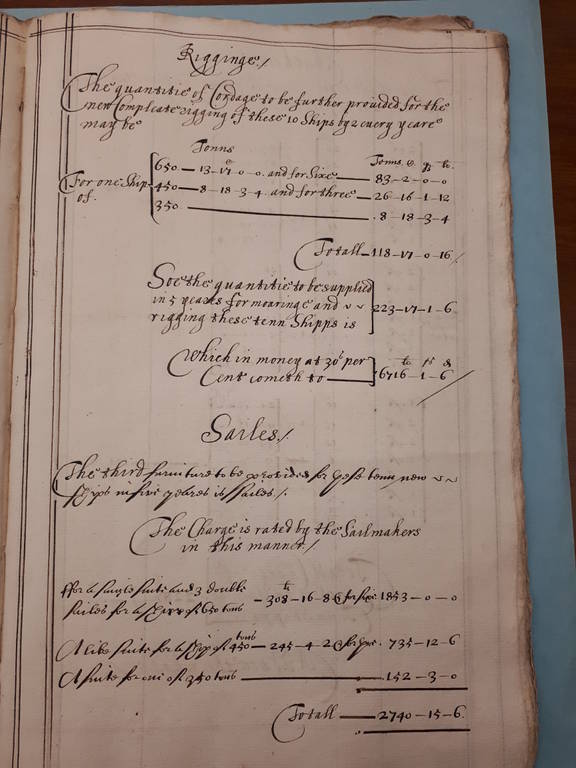 Rigginge /
The quantitie of Cordage to be further provided for the
new Compleate rigging of these 10 Ships by 2 every yeare
may be
Tonns
Tonns. C. q. lb.
650 — 13-17-0-0. and for Sixe — 83-2-0-0
For one Ship 450 — 8-18-3-4 and for three — 26-16-1-12
of. 350 — 8-18-3-4
Totall — 118-17-0-16 /
Soe the quantitie to be supplied
in 5 yeares for moaringe and
rigging these tenn Shipps is 223-17-1-6
Which in money at 30s per
Cent cometh to — 6716-1-6
Sailes /.
The third furniture to be provided for these tenn new
shipps in five yeares is sailes /.
The Charge is rated by the Sailmakers
in this manner /
ffor a single suite and 3 double
sailes for a shipp of 650 tons — 308-16-8 & for sixe 1853-0-0
A like suite for a shipp of 450 tons — 245-4-2 & for 735-12-6
A suite for one of 350 tons — 152-3-0
Totall — 2740-15-6.